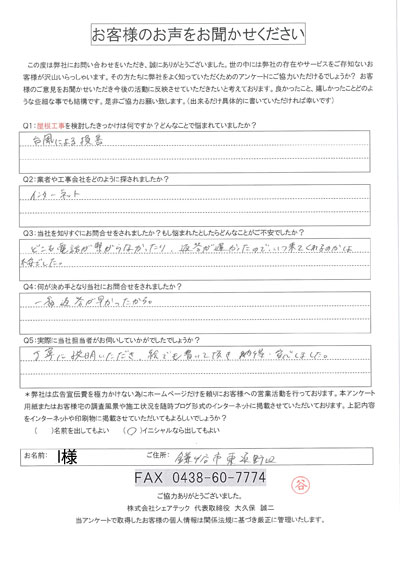 お客様のお声をお聞かせください
この度は弊社にお問い合わせをいただき、誠にありがとうございました。世の中には弊社の存在やサービスをご存知ないお
客様が沢山いらっしゃいます。その方たちに弊社をよく知っていただくためのアンケートにご協力いただけるでしょうか？ お客
様のご意見をお聞かせいただき今後の活動に反映させていただきたいと考えております。良かったこと、嬉しかったことどのよ
うな些細な事でも結構です。是非ご協力お願い致します。（出来るだけ具体的に書いていただければ幸いです）
Q1:屋根工事を検討したきっかけは何ですか？どんなことで悩まれていましたか？
台風による損害
Q2:業者や工事会社をどのように探されましたか？
インターネット
Q3:当社を知りすぐにお問合せをされましたか？もし悩まれたとしたらどんなことがご不安でしたか？
どこも電話が繋がらなかったり、返答が遅かったので、いつ来てくれるのかは
不安でした。
Q4:何が決め手となり当社にお問合せをされましたか？
一番返答が早かったから。
Q5:実際に当社担当者がお伺いしていかがでしたでしょうか？
丁寧に説明いただき、絵でも書いて頂き
しました。
＊弊社は広告宣伝費を極力かけない為にホームページだけを頼りにお客様への営業活動を行っております。本アンケート
用紙またはお客様宅の調査風景や施工状況を随時ブログ形式のインターネットに掲載させていただいております。上記内容
をインターネットや印刷物に掲載させていただいてもよろしいでしょうか？
（　）名前を出してもよい　（○）イニシャルなら出してもよい
お名前:　I様　ご住所:　鎌ケ谷市東
FAX 0438-60-7774
谷
ご協力ありがとうございました。
株式会社シェアテック 代表取締役 大久保 誠二
当アンケートで取得したお客様の個人情報は関係法規に基づき厳正に管理いたします。